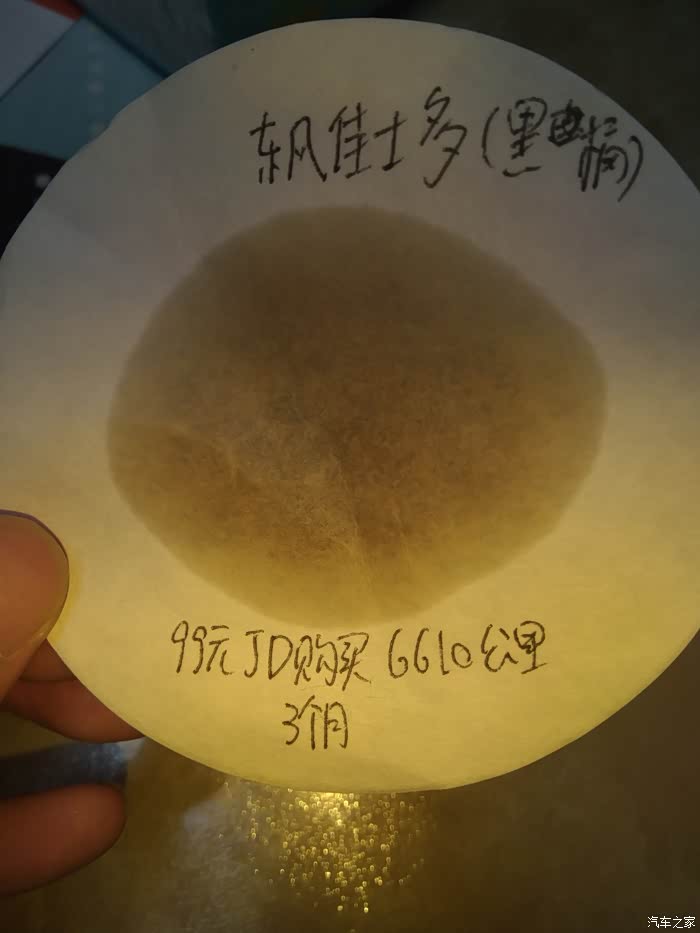 东风佳士多(黑 桶)
99元JD购买 6610公里
3个月
汽车之家